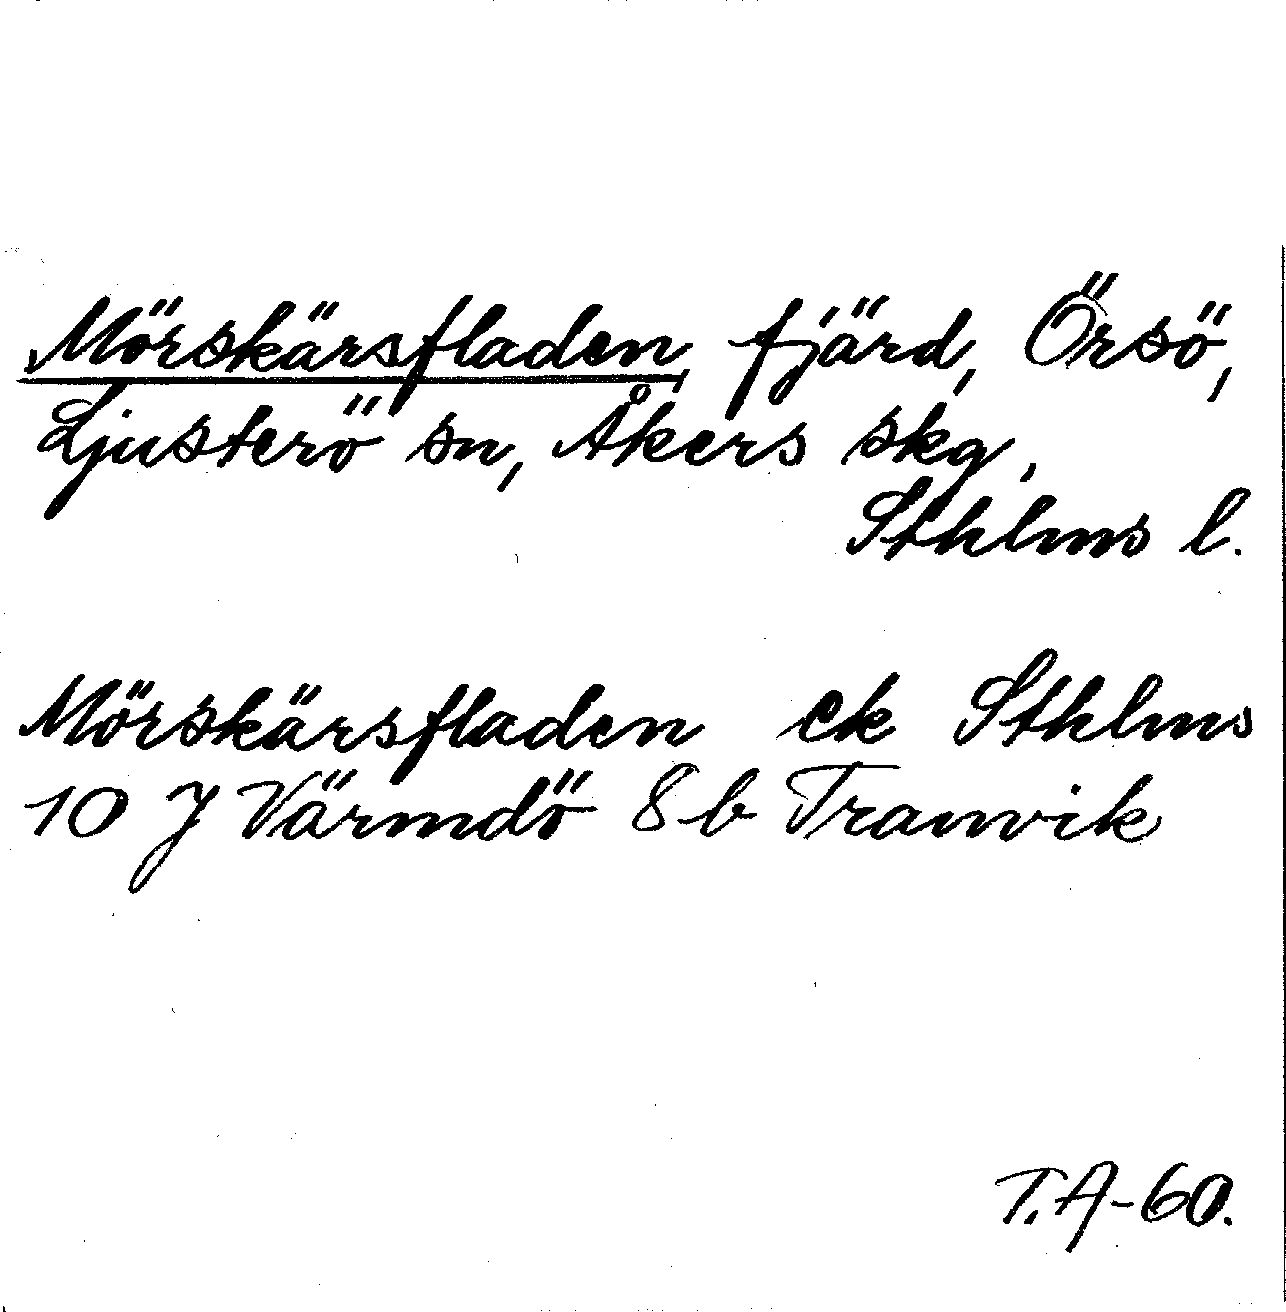 Mörskärsfladen, fjärd, Örsö,
Ljusterö sn, Åkers skg,
Sthlms l.
Mörskärsfladen ek Sthlms
10 J Värmdö 8 b Tranvik
T.A-60.